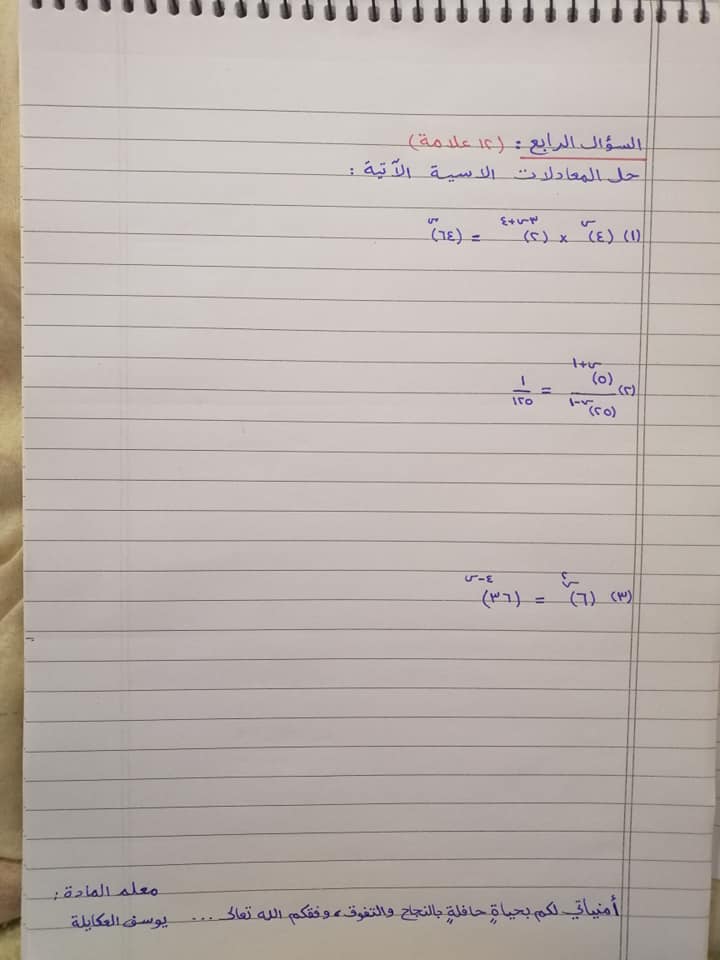 السؤال الرابع : (١٢ علامة)
حل المعادلات الاسية الآتية :
(١) (٤)^س × (٢)^(٣س+٤) = (٦٤)^س
(٢) (٥)^(س+١) / (٢٥)^(س-١) = ١/١٢٥
(٣) (٦)^(س^٢) = (٣٦)^(٤-س)
معلم المادة :
أمنياتي لكم بحياةٍ حافلةٍ بالنجاح والتفوق، وفقكم الله تعالى ... يوسف العكايلة